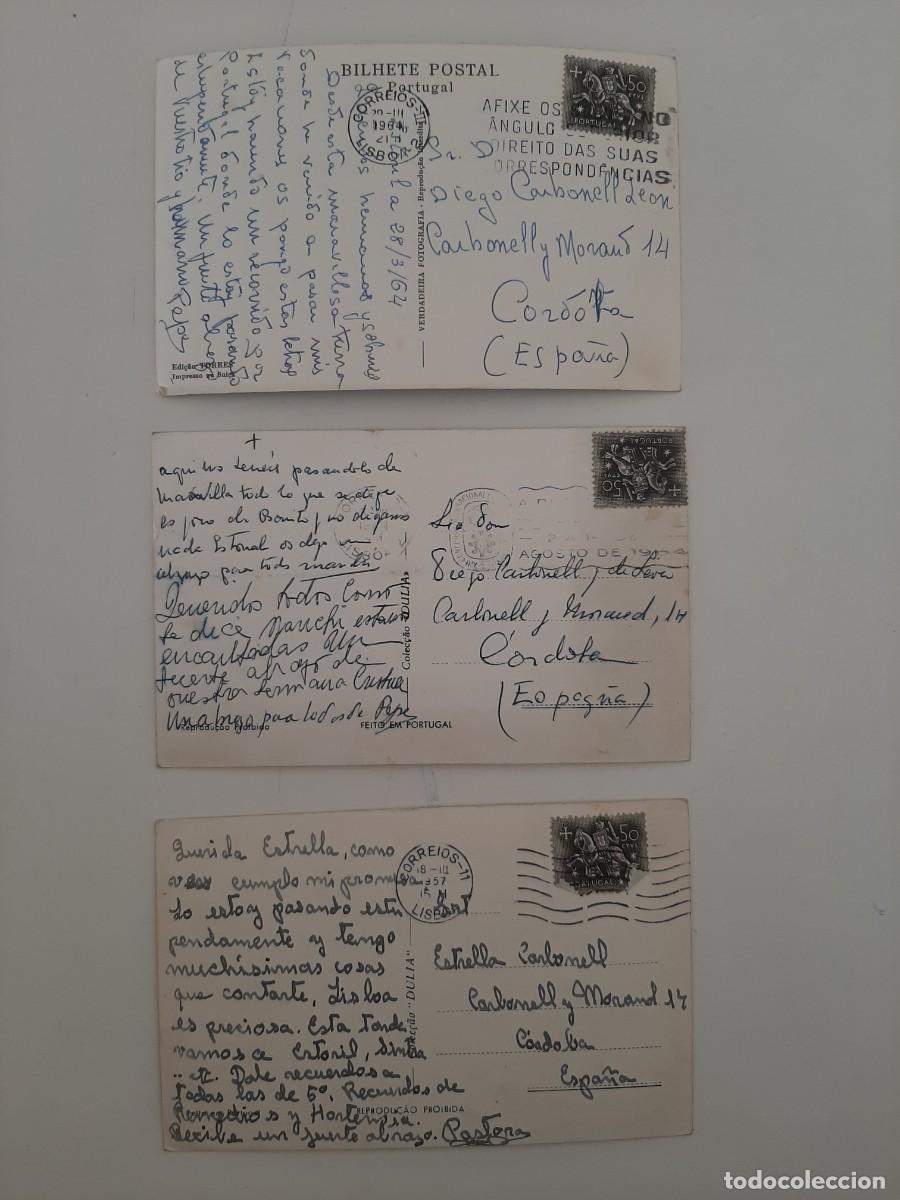 BILHETE POSTAL
Portugal
CORREIOS
1964
LISBOA
AFIXE OS NO
ÂNGULO
DIREITO DAS SUAS
CORRESPONDÊNCIAS
50
PORTUGAL
a 28/3/64
hermanos y sobrinos
Desde esta maravillosa tierra
donde he venido a pasar mis
vacaciones os pongo estas letras
Estoy haciendo un recorrido por
Portugal donde lo estoy pasando
estupendamente. Un fuerte abrazo
de vuestro tio y hermano Pepe
Sr. D.
Diego Carbonell Leon
Carbonell y Morand 14
Cordoba
(España)
VERDADEIRA FOTOGRAFIA - Reprodução
Edição TORRES
Impresso na Suiça
+
aqui nos teneis pasandolo de
maravilla todo lo que se diga
es poco de Bonito y no digamos
nada Estoril os deja un
abrazo para todos
Queridos todos Como
te dice estamos
encantadas Un
fuerte abrazo de
vuestra hermana
Un abrazo para todos de Pepe
Reprodução Proibida
FEITO EM PORTUGAL
Colecção "DULIA"
PORTUGAL
50
AGOSTO DE
Don
Diego Carbonell y de León
Carbonell y Morand, 14
Córdoba
(España)
Querida Estrella, como
ves cumplo mi promesa
Lo estoy pasando estu
pendamente y tengo
muchísimas cosas
que contarte, Lisboa
es preciosa. Esta tarde
vamos a Estoril, Sintra
Dale recuerdos a
todas las de 5º. Recuerdos de
Remedios y Hortensia.
Recibe un fuerte abrazo. Pastora
REPRODUÇÃO PROIBIDA
Colecção "DULIA"
CORREIOS-11
18-III
57
LISBOA
50
PORTUGAL
Srt
Estrella Carbonell
Carbonell y Morand 14
Córdoba
España
todocoleccion